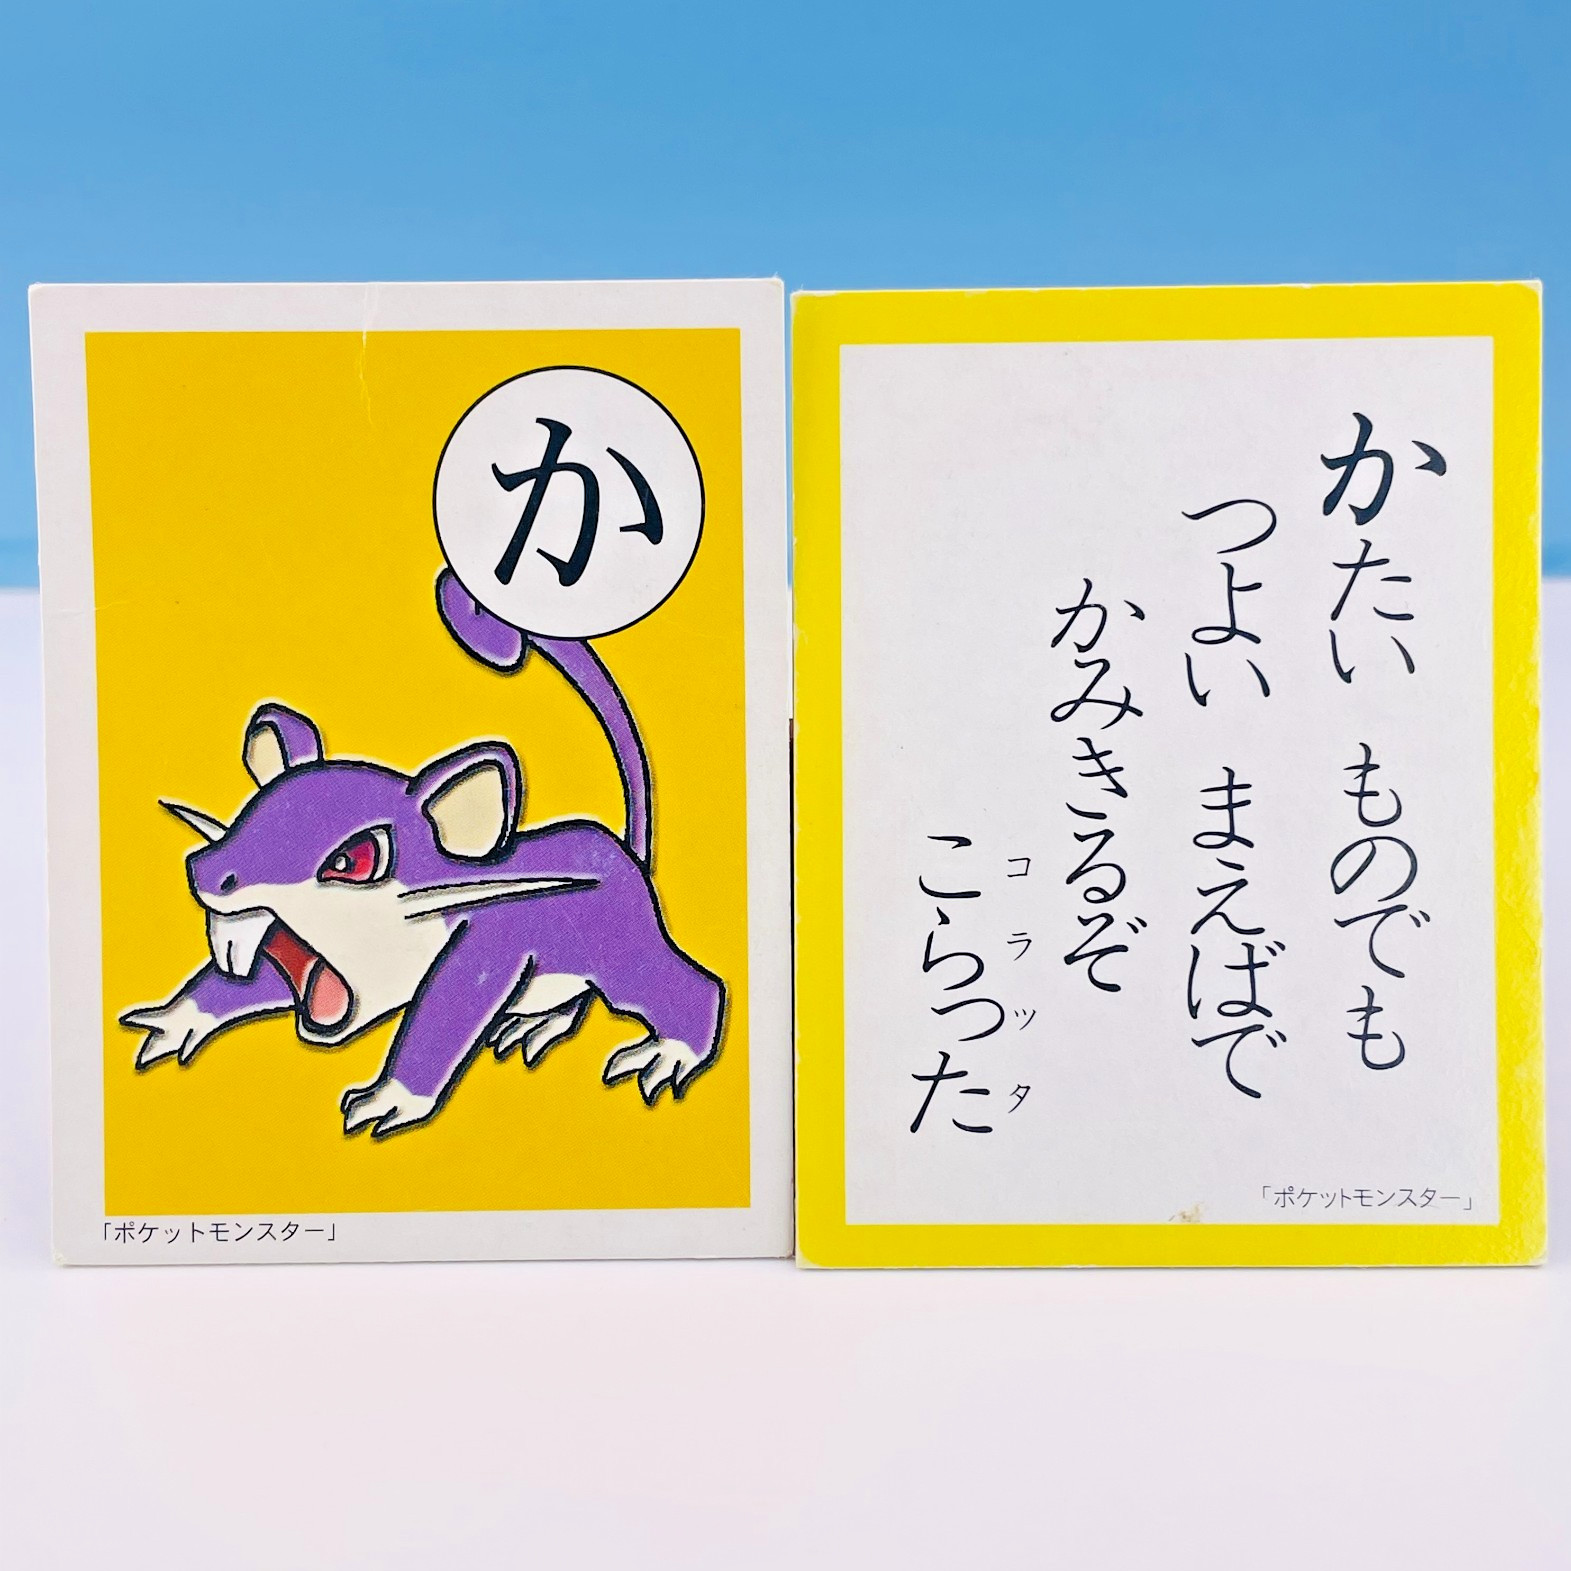 か
「ポケットモンスター」
かたい ものでも
つよい まえばで
かみきるぞ
コラッタ
こらった
「ポケットモンスター」